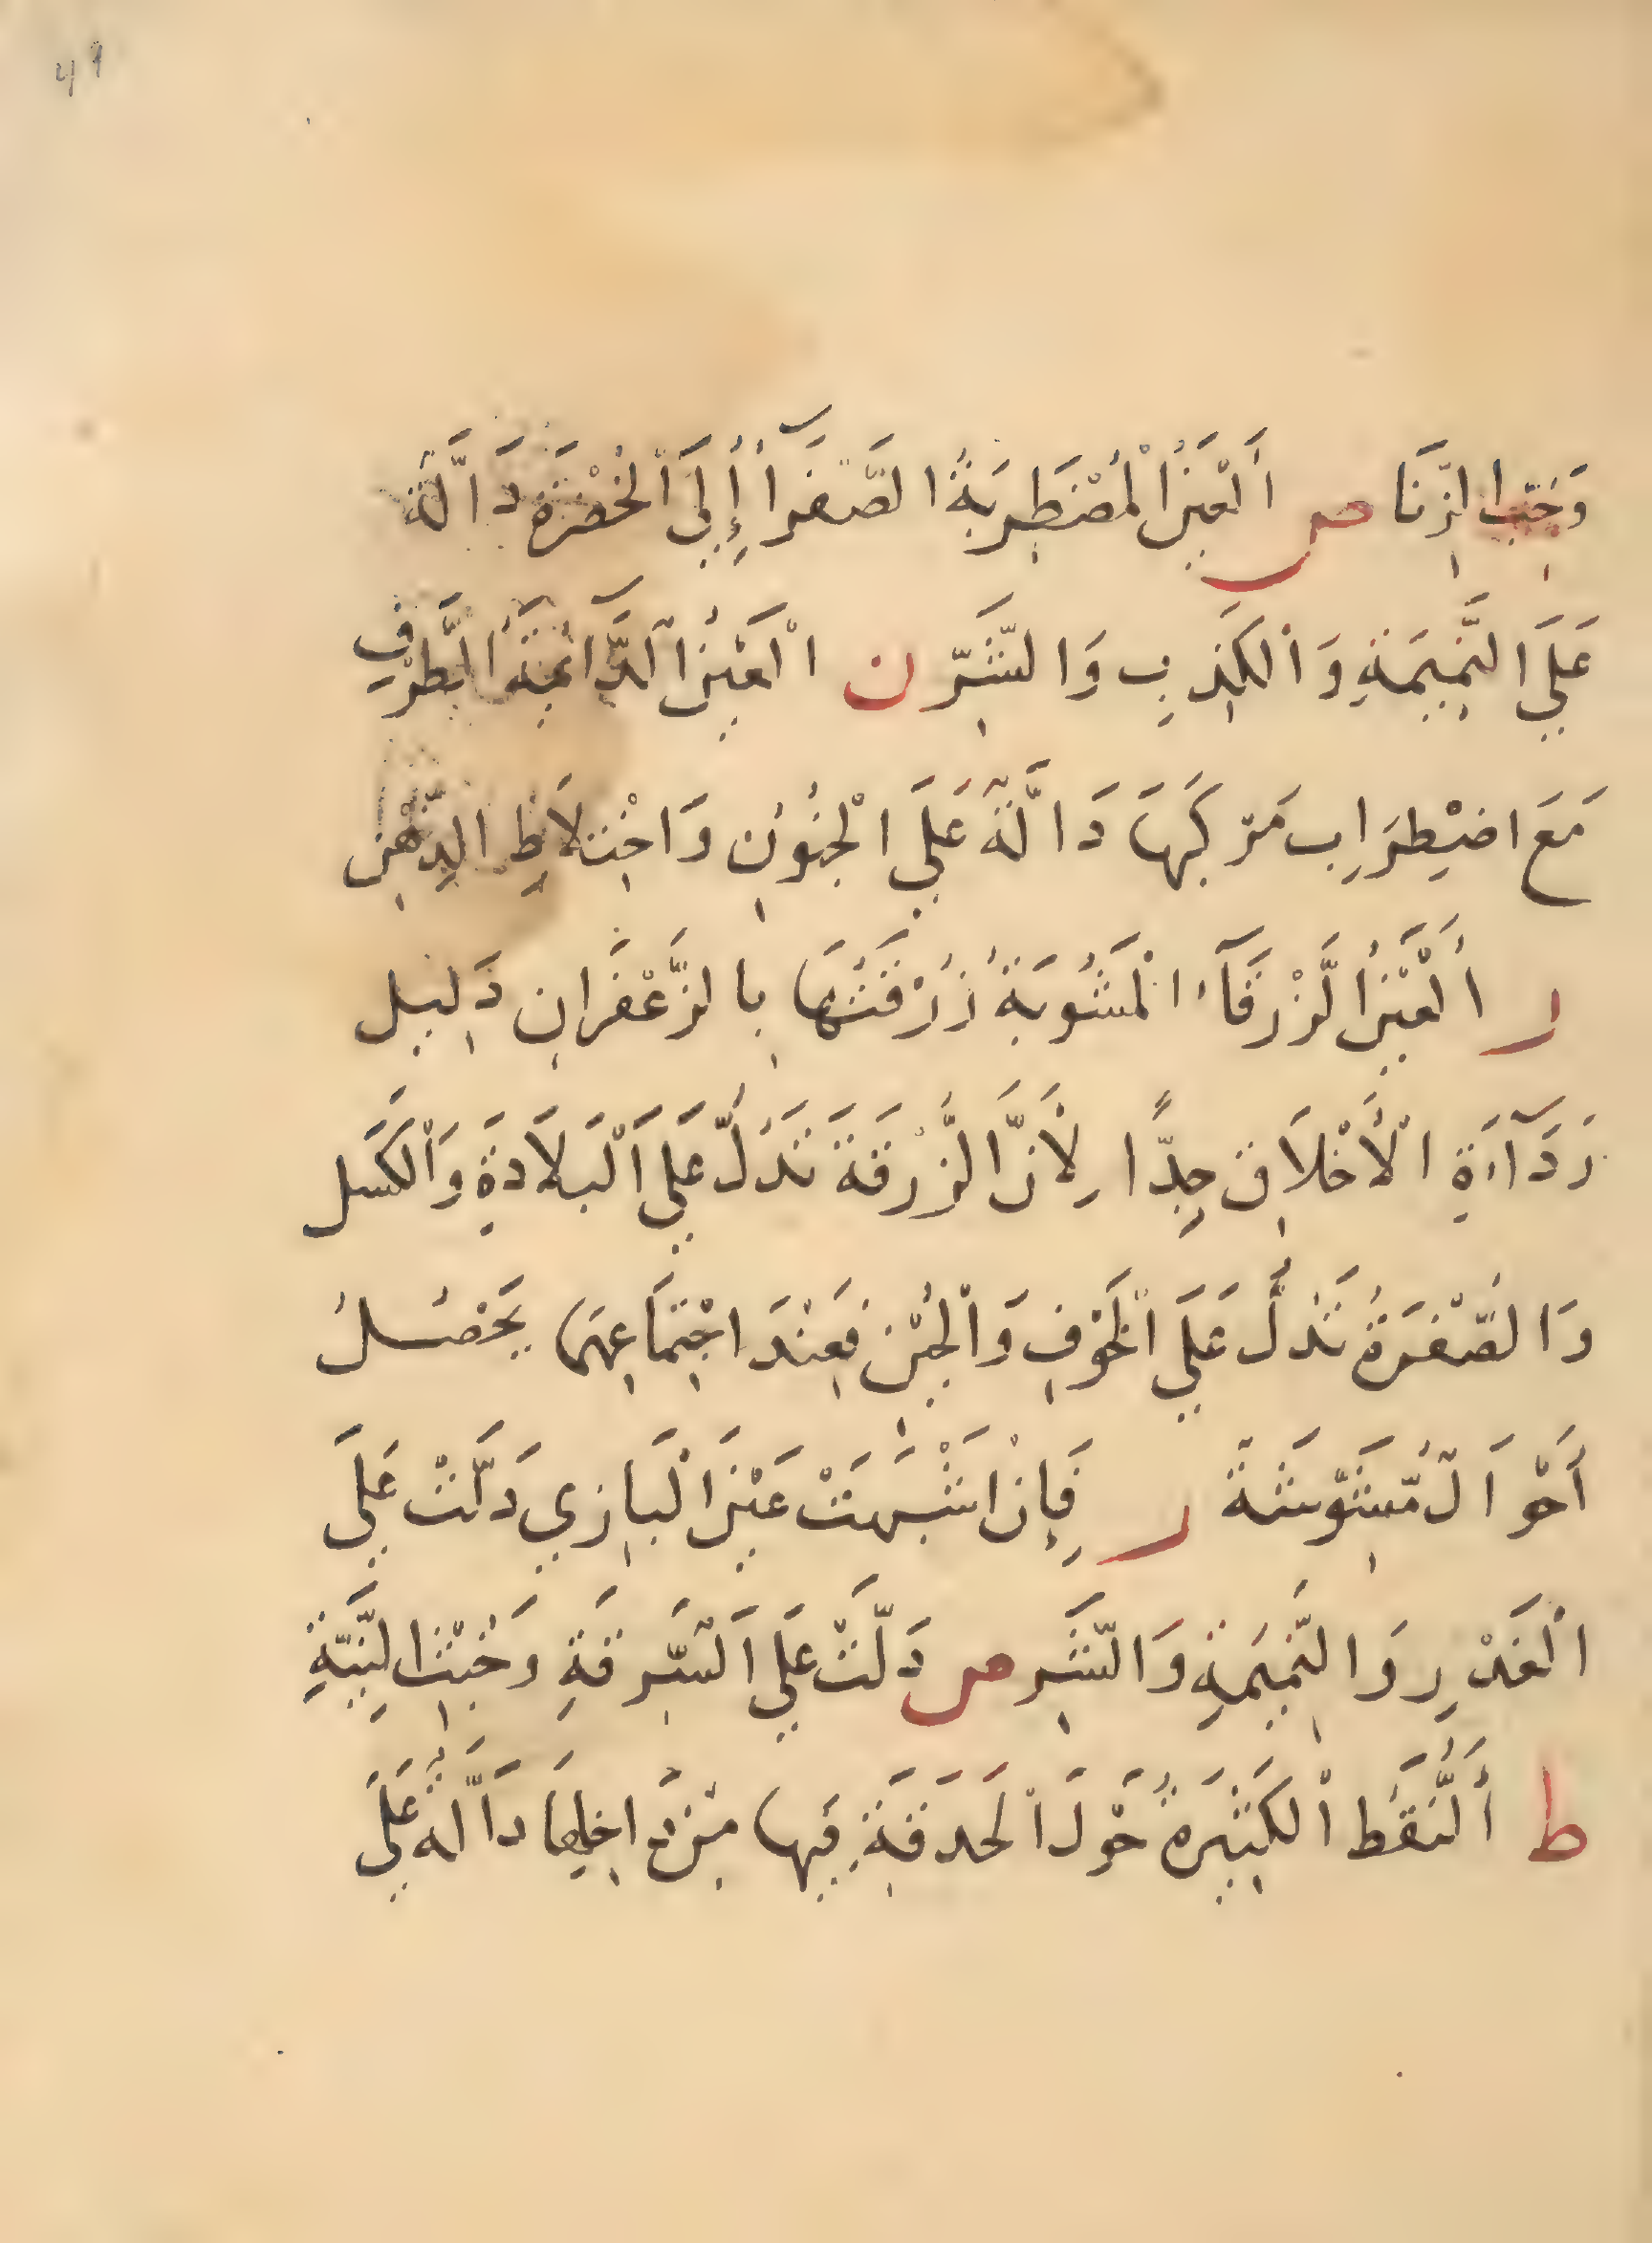 49
وَحُبِّ الزِّنَا ص أَلْعَيْنُ الْمُضْطَرِبَةُ الصَّفْرَآءُ إِلَى الْخُضْرَةِ دَالَّةٌ
عَلَي النَّمِيمَةِ وَالْكَذِبِ وَالشَّرِّ ن الْعَيْنُ الدَّآئِمَةُ الطَّرْفِ
مَعَ اضْطِرَابِ مَرْكَبِهَا دَالَّةٌ عَلَي الْجُنُونِ وَاخْتِلاَطِ الذِّهْنِ
ر أَلْعَيْنُ الزَّرْقَآءُ الْمَشُوبَةُ زُرْقَتُهَا بِالزَّعْفَرَانِ دَلِيل
رَدَآءَةِ الْأَخْلاَقِ جِدًّا لِأَنَّ الزُّرْقَةَ تَدُلُّ عَلَي الْبَلاَدَةِ وَالْكَسَلِ
وَالصُّفْرَةُ تَدُلُّ عَلَي الْخَوْفِ وَالْجُبْنِ فَعِنْدَ اجْتِمَاعِهِمَا يَحْصُلُ
أَحْوَالٌ مُّشَوِّشَةٌ ر فَإِنْ اشْبَهَتْ عَيْنَ الْبَازِي دَلَّتْ عَلَي
الْغَدْرِ وَالنَّمِيمَةِ وَالشَّرِ ص دَلَّتْ عَلَي السَّرِقَةِ وَخُبْثِ النِّيَّةِ
ط أَلنُّقَطُ الْكَثِيرَةُ حَوْلَ الْحَدَقَةِ فِيهَا مِنْ دَاخِلِهَا دَالَّةٌ عَلَي